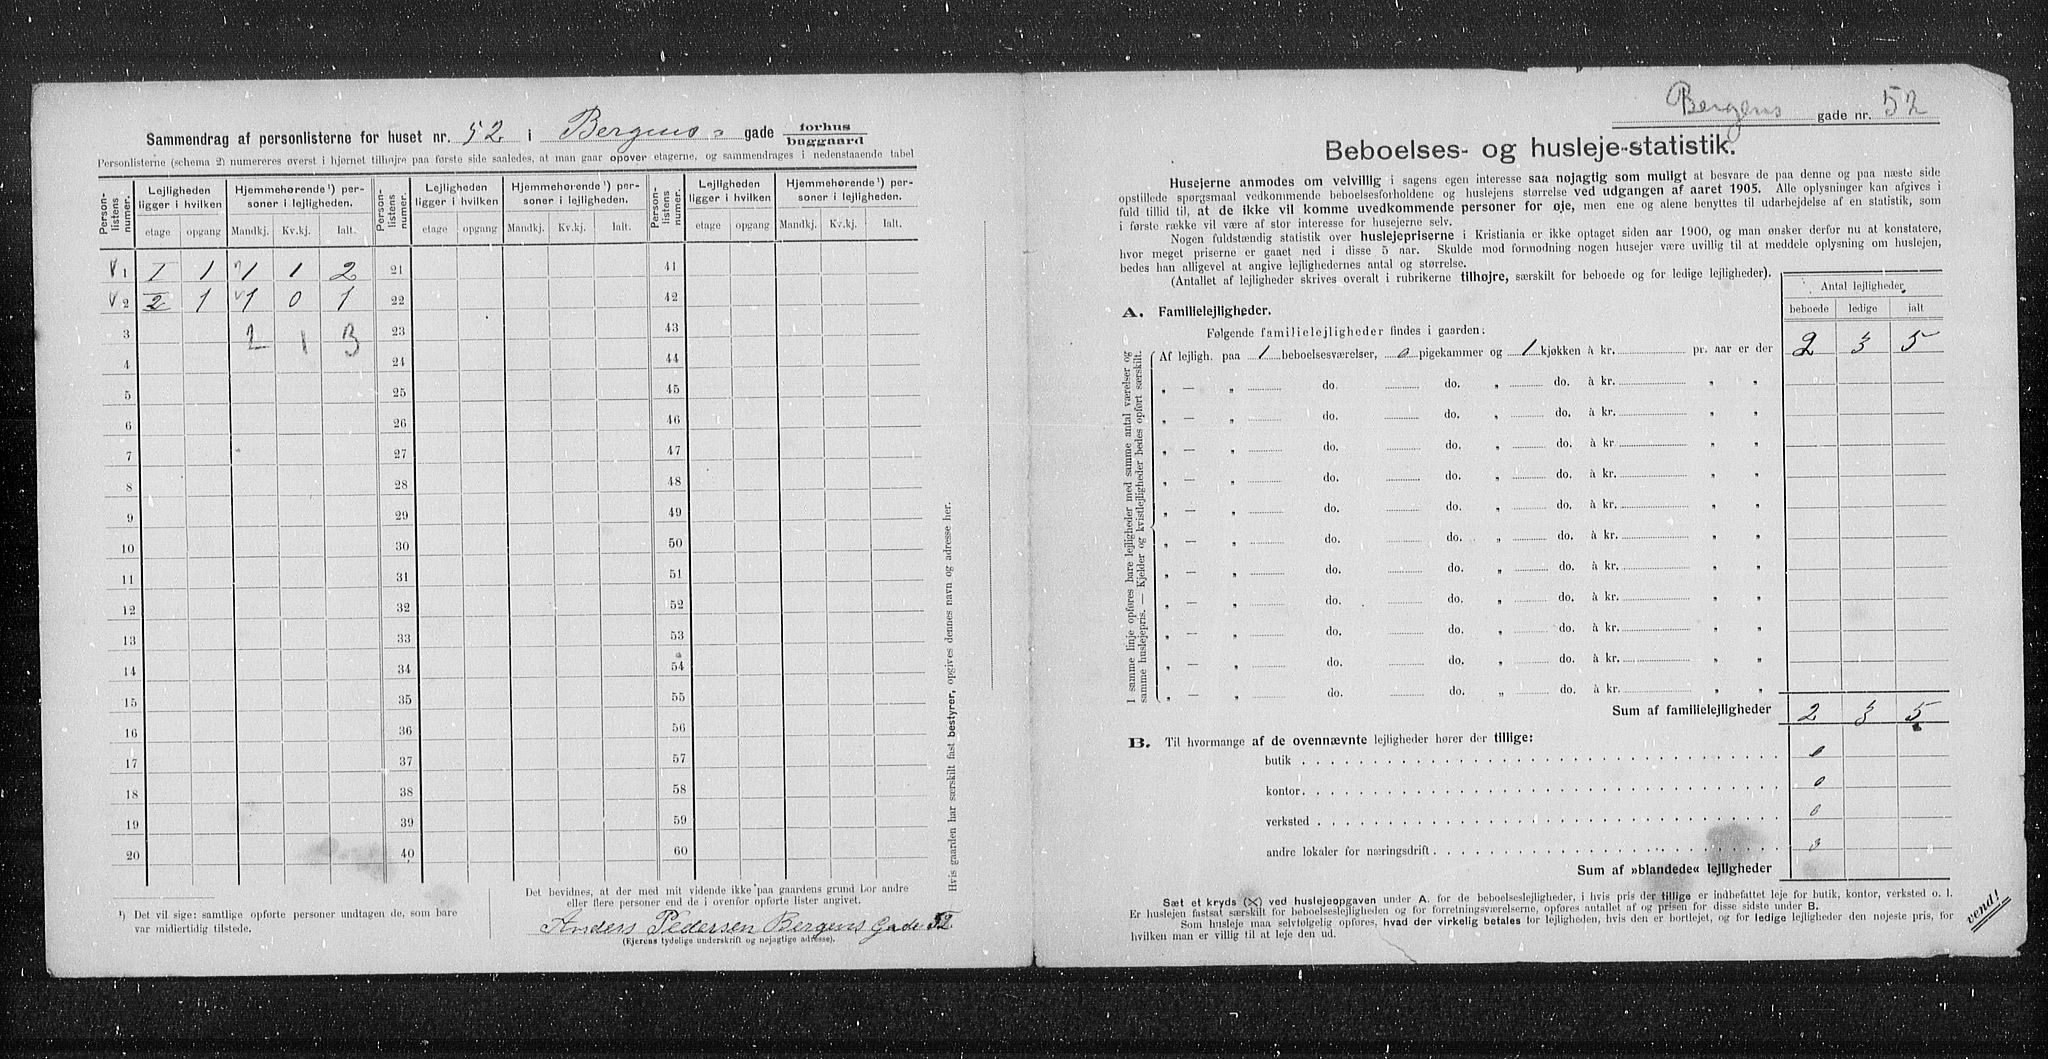 Sammendrag af personlisterne for huset nr. 52 i Bergens gade forhus
baggaard
Personlisterne (schema 2) numereres øverst i hjørnet tilhøjre paa første side saaledes, at man gaar opover etagerne, og sammendrages i nedenstaaende tabel
Person-listens numer. Lejligheden ligger i hvilken Hjemmehørende ¹) personer i lejligheden. Person-listens numer. Lejligheden ligger i hvilken Hjemmehørende ¹) personer i lejligheden. Person-listens numer. Lejligheden ligger i hvilken Hjemmehørende ¹) personer i lejligheden.
etage opgang Mandkj. Kv.kj. Ialt. etage opgang Mandkj. Kv.kj. Ialt. etage opgang Mandkj. Kv.kj. Ialt.
1 I 1 1 1 2 21 41
2 2 1 1 0 1 22 42
3 2 1 3 23 43
4 24 44
5 25 45
6 26 46
7 27 47
8 28 48
9 29 49
10 30 50
11 31 51
12 32 52
13 33 53
14 34 54
15 35 55
16 36 56
17 37 57
18 38 58
19 39 59
20 40 60
¹) Det vil sige: samtlige opførte personer undtagen de, som bare
var midlertidig tilstede.
Det bevidnes, at der med mit vidende ikke paa gaardens grund bor andre
eller flere personer end de i ovenfor opførte lister angivet.
Anders Pedersen Bergens Gade 52.
(Ejerens tydelige underskrift og nøjagtige adresse).
Hvis gaarden har særskilt fast bestyrer, opgives dennes navn og adresse her.
Bergens gade nr. 52
Beboelses- og husleje-statistik.
Husejerne anmodes om velvillig i sagens egen interesse saa nøjagtig som muligt at besvare de paa denne og paa næste side
opstillede spørgsmaal vedkommende beboelsesforholdene og huslejens størrelse ved udgangen af aaret 1905. Alle oplysninger kan afgives i
fuld tillid til, at de ikke vil komme uvedkommende personer for øje, men ene og alene benyttes til udarbejdelse af en statistik, som
i første række vil være af stor interesse for husejerne selv.
Nogen fuldstændig statistik over huslejepriserne i Kristiania er ikke optaget siden aar 1900, og man ønsker derfor nu at konstatere,
hvor meget priserne er gaaet ned i disse 5 aar. Skulde mod formodning nogen husejer være uvillig til at meddele oplysning om huslejen,
bedes han alligevel at angive lejlighedernes antal og størrelse.
(Antallet af lejligheder skrives overalt i rubrikerne tilhøjre, særskilt for beboede og for ledige lejligheder).
Antal lejligheder
beboede ledige ialt
A. Familielejligheder.
Følgende familielejligheder findes i gaarden:
I samme linje opføres bare lejligheder med samme antal værelser og
samme huslejepris. — Kjelder og kvistlejligheder bedes opført særskilt.
Af lejligh. paa 1 beboelsesværelser, 0 pigekammer og 1 kjøkken à kr. pr. aar er der 2 3 5
„ — „ do. do. „ do. à kr. „ „
„ — „ do. do. „ do. à kr. „ „
„ — „ do. do. „ do. à kr „ „
„ — „ do. do. „ do. à kr. „ „
„ — „ do. do. „ do. à kr. „ „
„ — „ do. do. „ do. à kr. „ „
„ — „ do. do. „ do. à kr. „ „
„ — „ do. do. „ do. à kr. „ „
„ — „ do. do. „ do. à kr. „ „
„ — „ do. do. „ do. à kr. „ „
„ — „ do. do. „ do. à kr. „ „
Sum af familielejligheder 2 3 5
B. Til hvormange af de ovennævnte lejligheder hører der tillige:
butik 0
kontor 0
verksted 0
andre lokaler for næringsdrift 0
Sum af »blandede« lejligheder
Sæt et kryds (X) ved huslejeopgaven under A. for de beboelseslejligheder, i hvis pris der tillige er indbefattet leje for butik, kontor, verksted o. l.
Er huslejen fastsat særskilt for beboelseslejligheden og for forretningsværelserne, opføres antallet af og prisen for disse sidste under B.
Som husleje maa selvfølgelig opføres, hvad der virkelig betales for lejligheden, hvis den er bortlejet, og for ledige lejligheder den nøjeste pris, for
hvilken man er villig til at leje den ud.
vend!